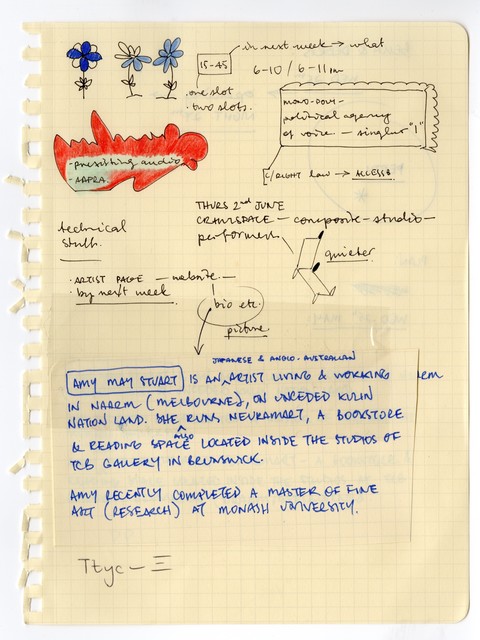 in next week → what
15-45
6-10 / 6-11
· one slot
· two slots.
political agency
of voice. — singular "I"
- prexisting audio
- APRA.
C/RIGHT law → ACCESS
THURS 2nd JUNE
CRAWLSPACE — composite - studio —
performers
quieter
technical
stuff.
· ARTIST PAGE — website —
· by next week
bio etc.
picture
JAPANESE & ANGLO-AUSTRALIAN
AMY MAY STUART IS AN ARTIST LIVING & WORKING
IN NAARM (MELBOURNE), ON UNCEDED KULIN
NATION LAND. SHE RUNS NEURAMART, A BOOKSTORE
& READING SPACE LOCATED INSIDE THE STUDIOS OF
also
TCB GALLERY IN BRUNSWICK.
AMY RECENTLY COMPLETED A MASTER OF FINE
ART (RESEARCH) AT MONASH UNIVERSITY.